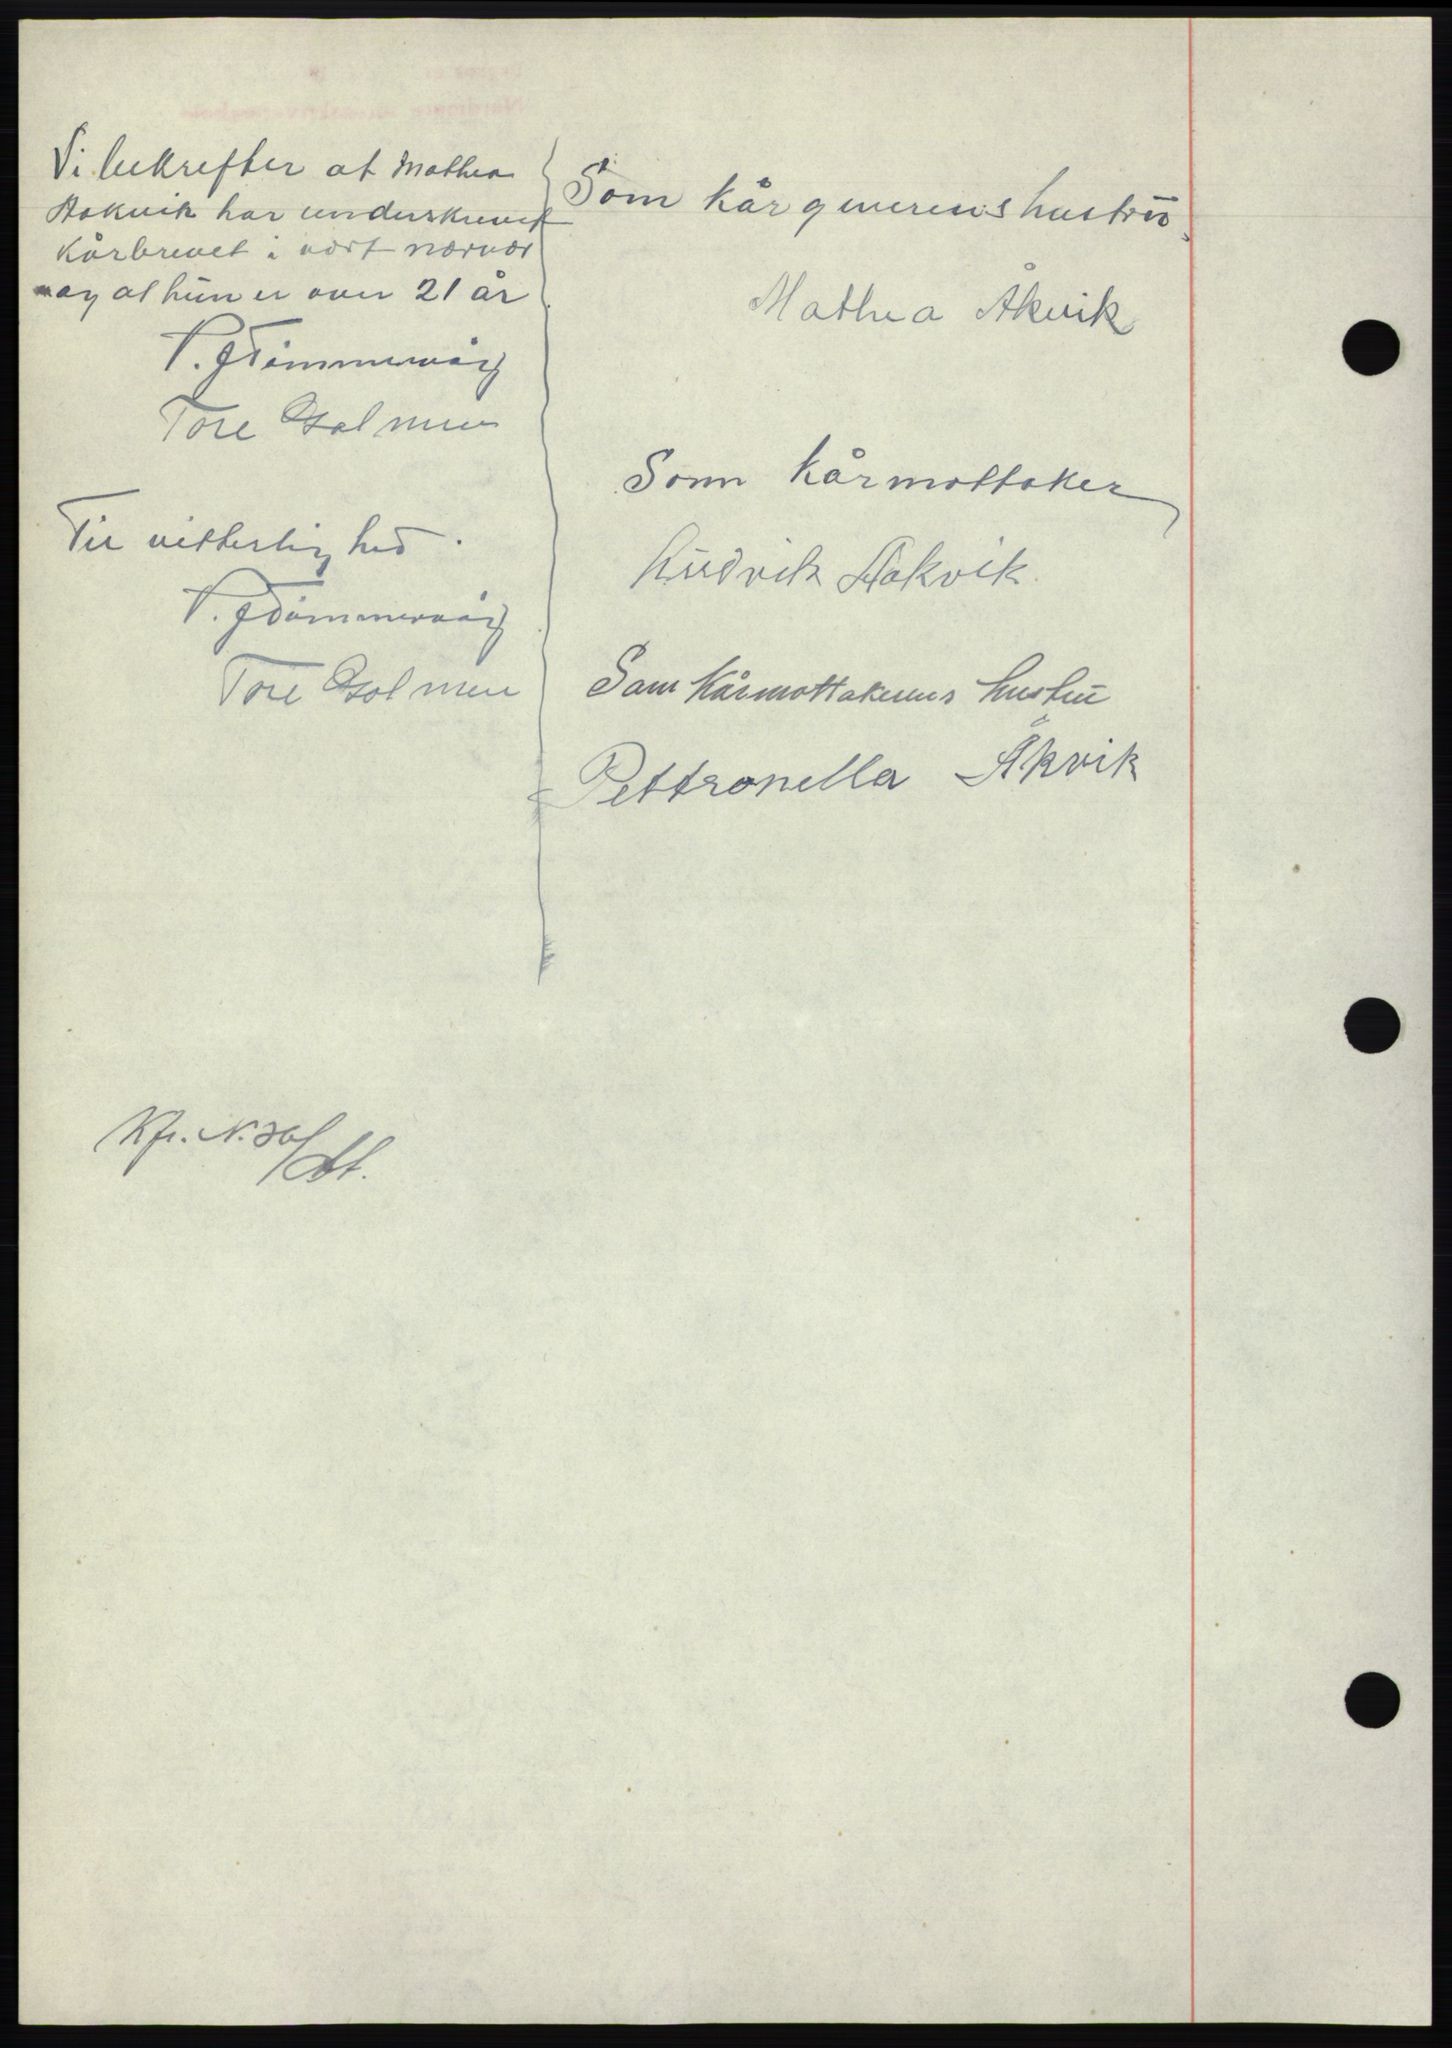 Vi bekrefter at Mathea
Aakvik har underskrevet
kårbrevet i vårt nærvær
og at hun er over 21 år
Tore Holmen
Til vitterlighed.
Tore Holmen
Som kårgiverens hustru
Mathea Åkvik
Som kårmottaker
Ludvik Aakvik.
Som kårmottakerens hustru
Pettronella Åkvik
Kfr. N.